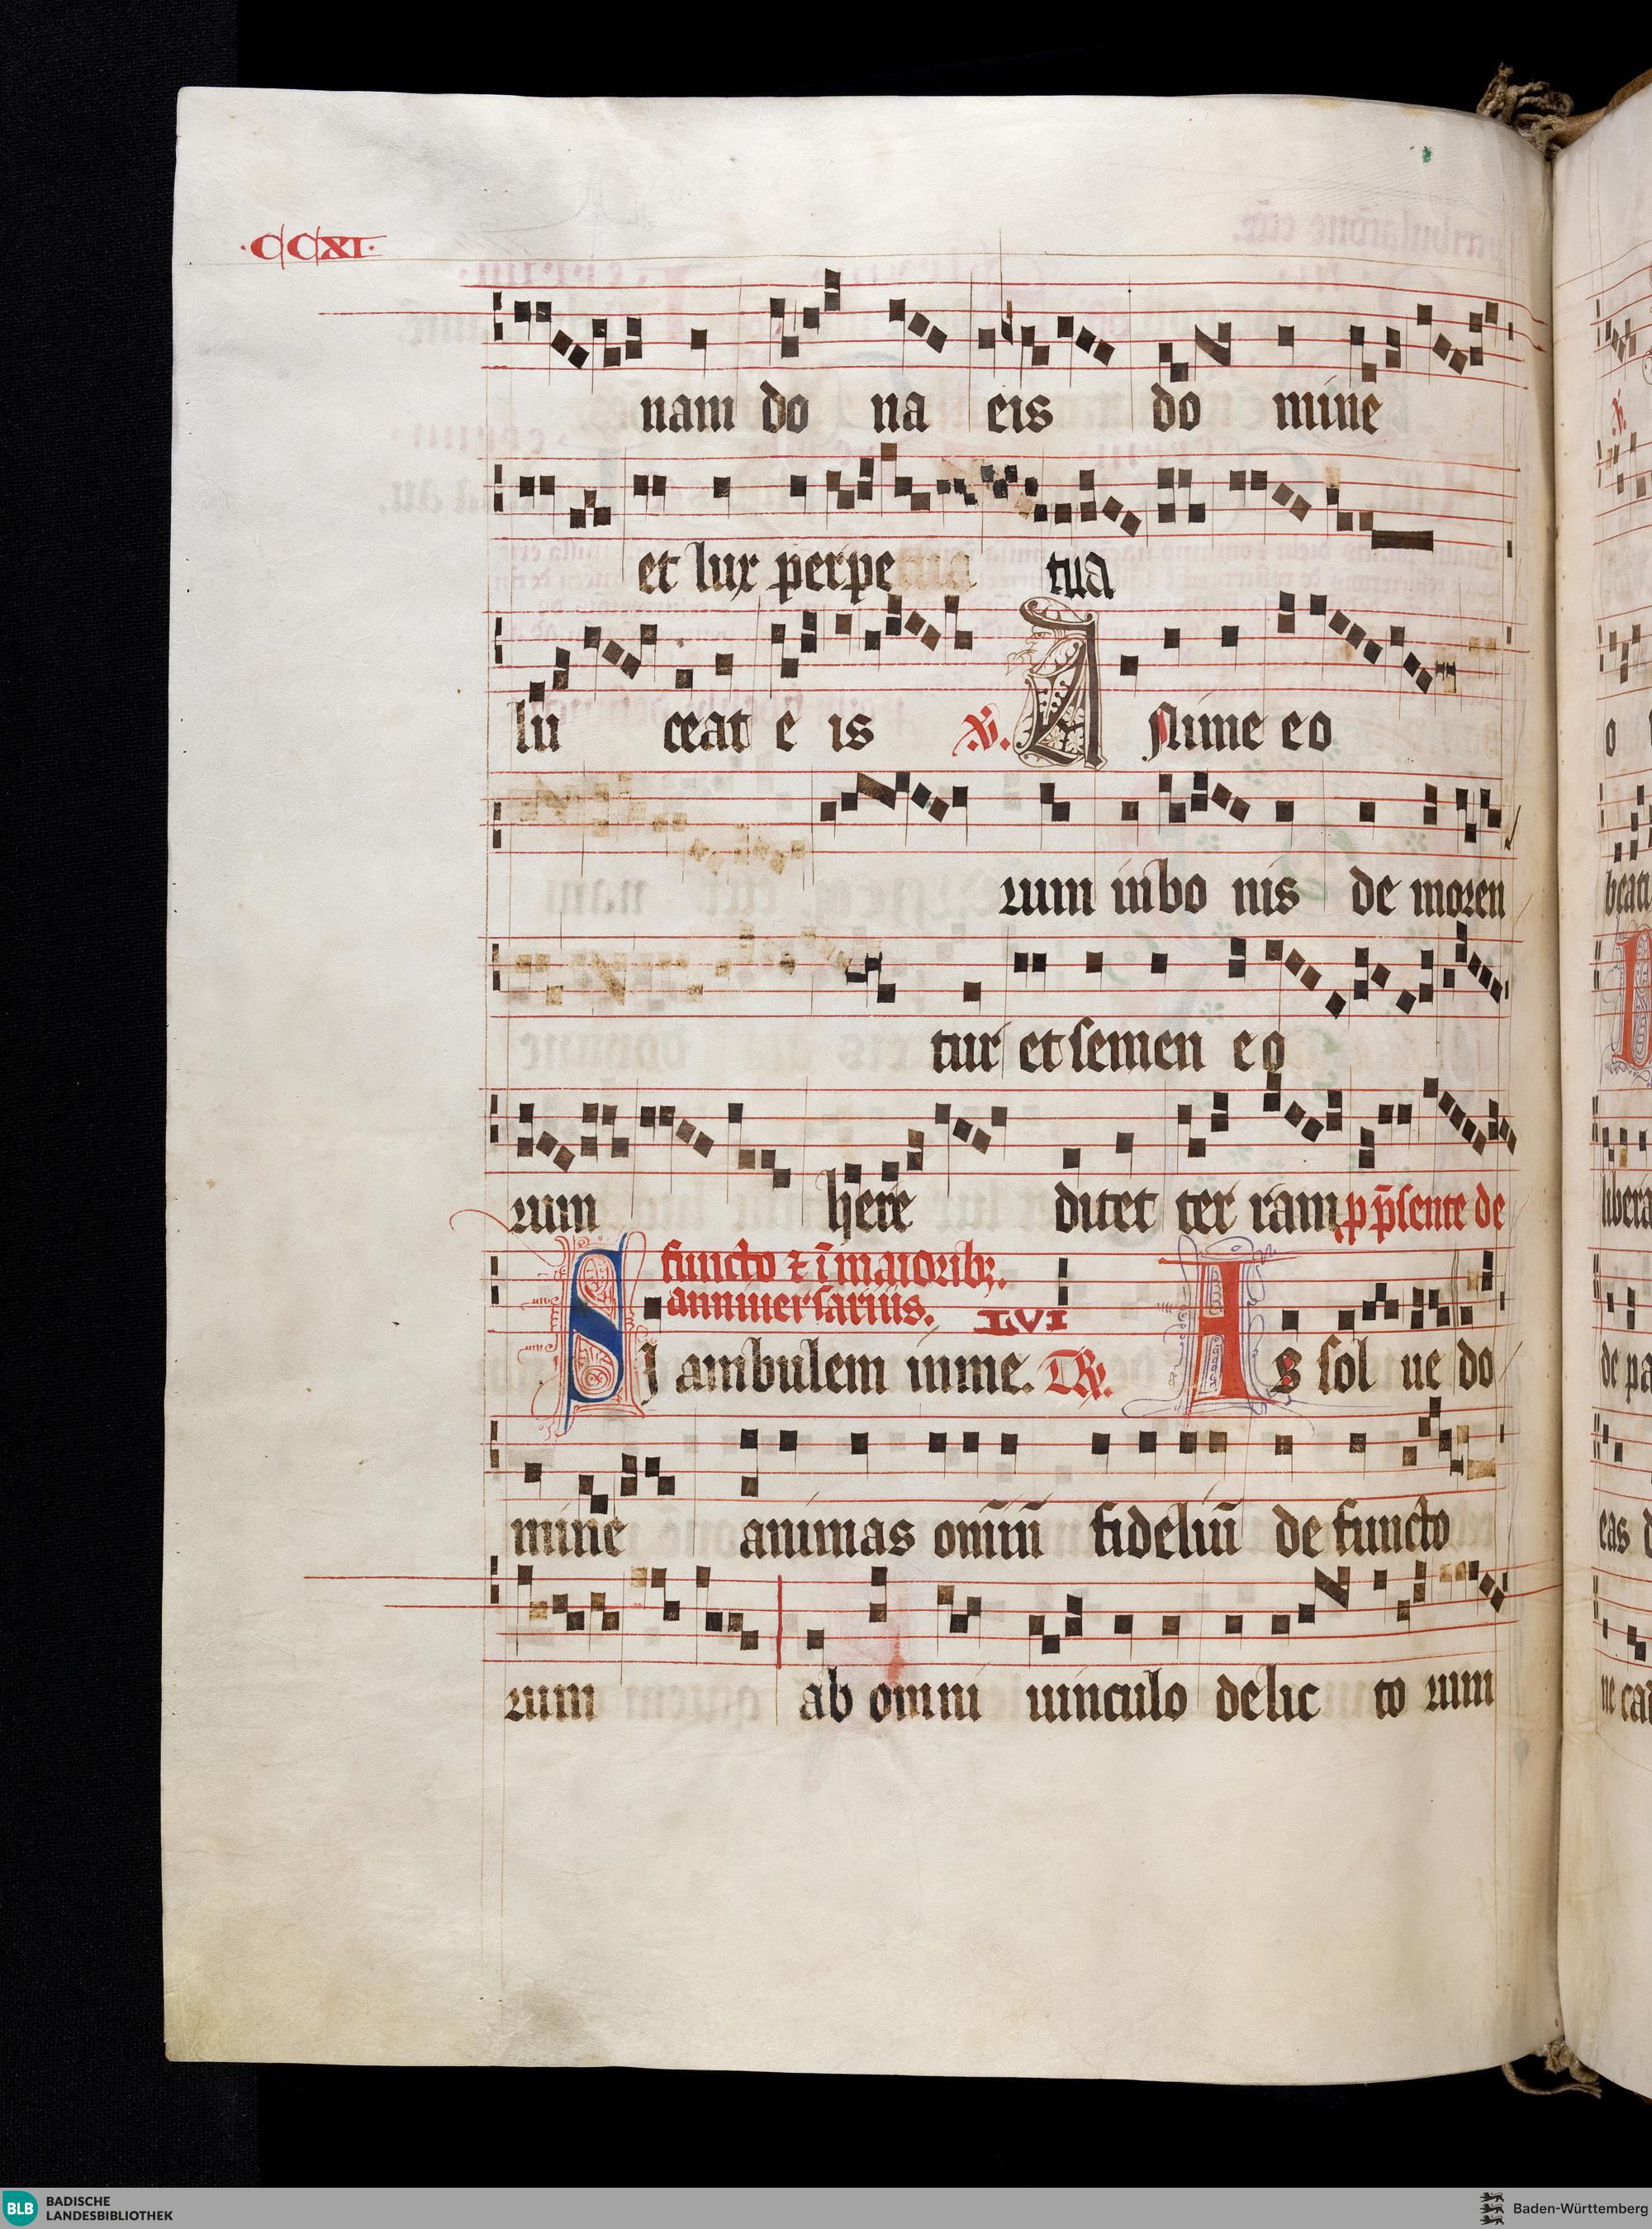 ·CCXI·
nam do na eis do mine
et lux perpe tua
lu ceat e is ℣. A nime eo
rum inbo nis de moren
tur et semen e o
rum here ditet ter ram p p̄sente de
functo ⁊ ī maioribꝫ.
anniuersariis. LVI
Sj ambulem inme. TR̸. As sol ue do
mine animas om̄iū fideliū de functo
rum ab omni uinculo delic to rum
BLB BADISCHE
LANDESBIBLIOTHEK
Baden-Württemberg